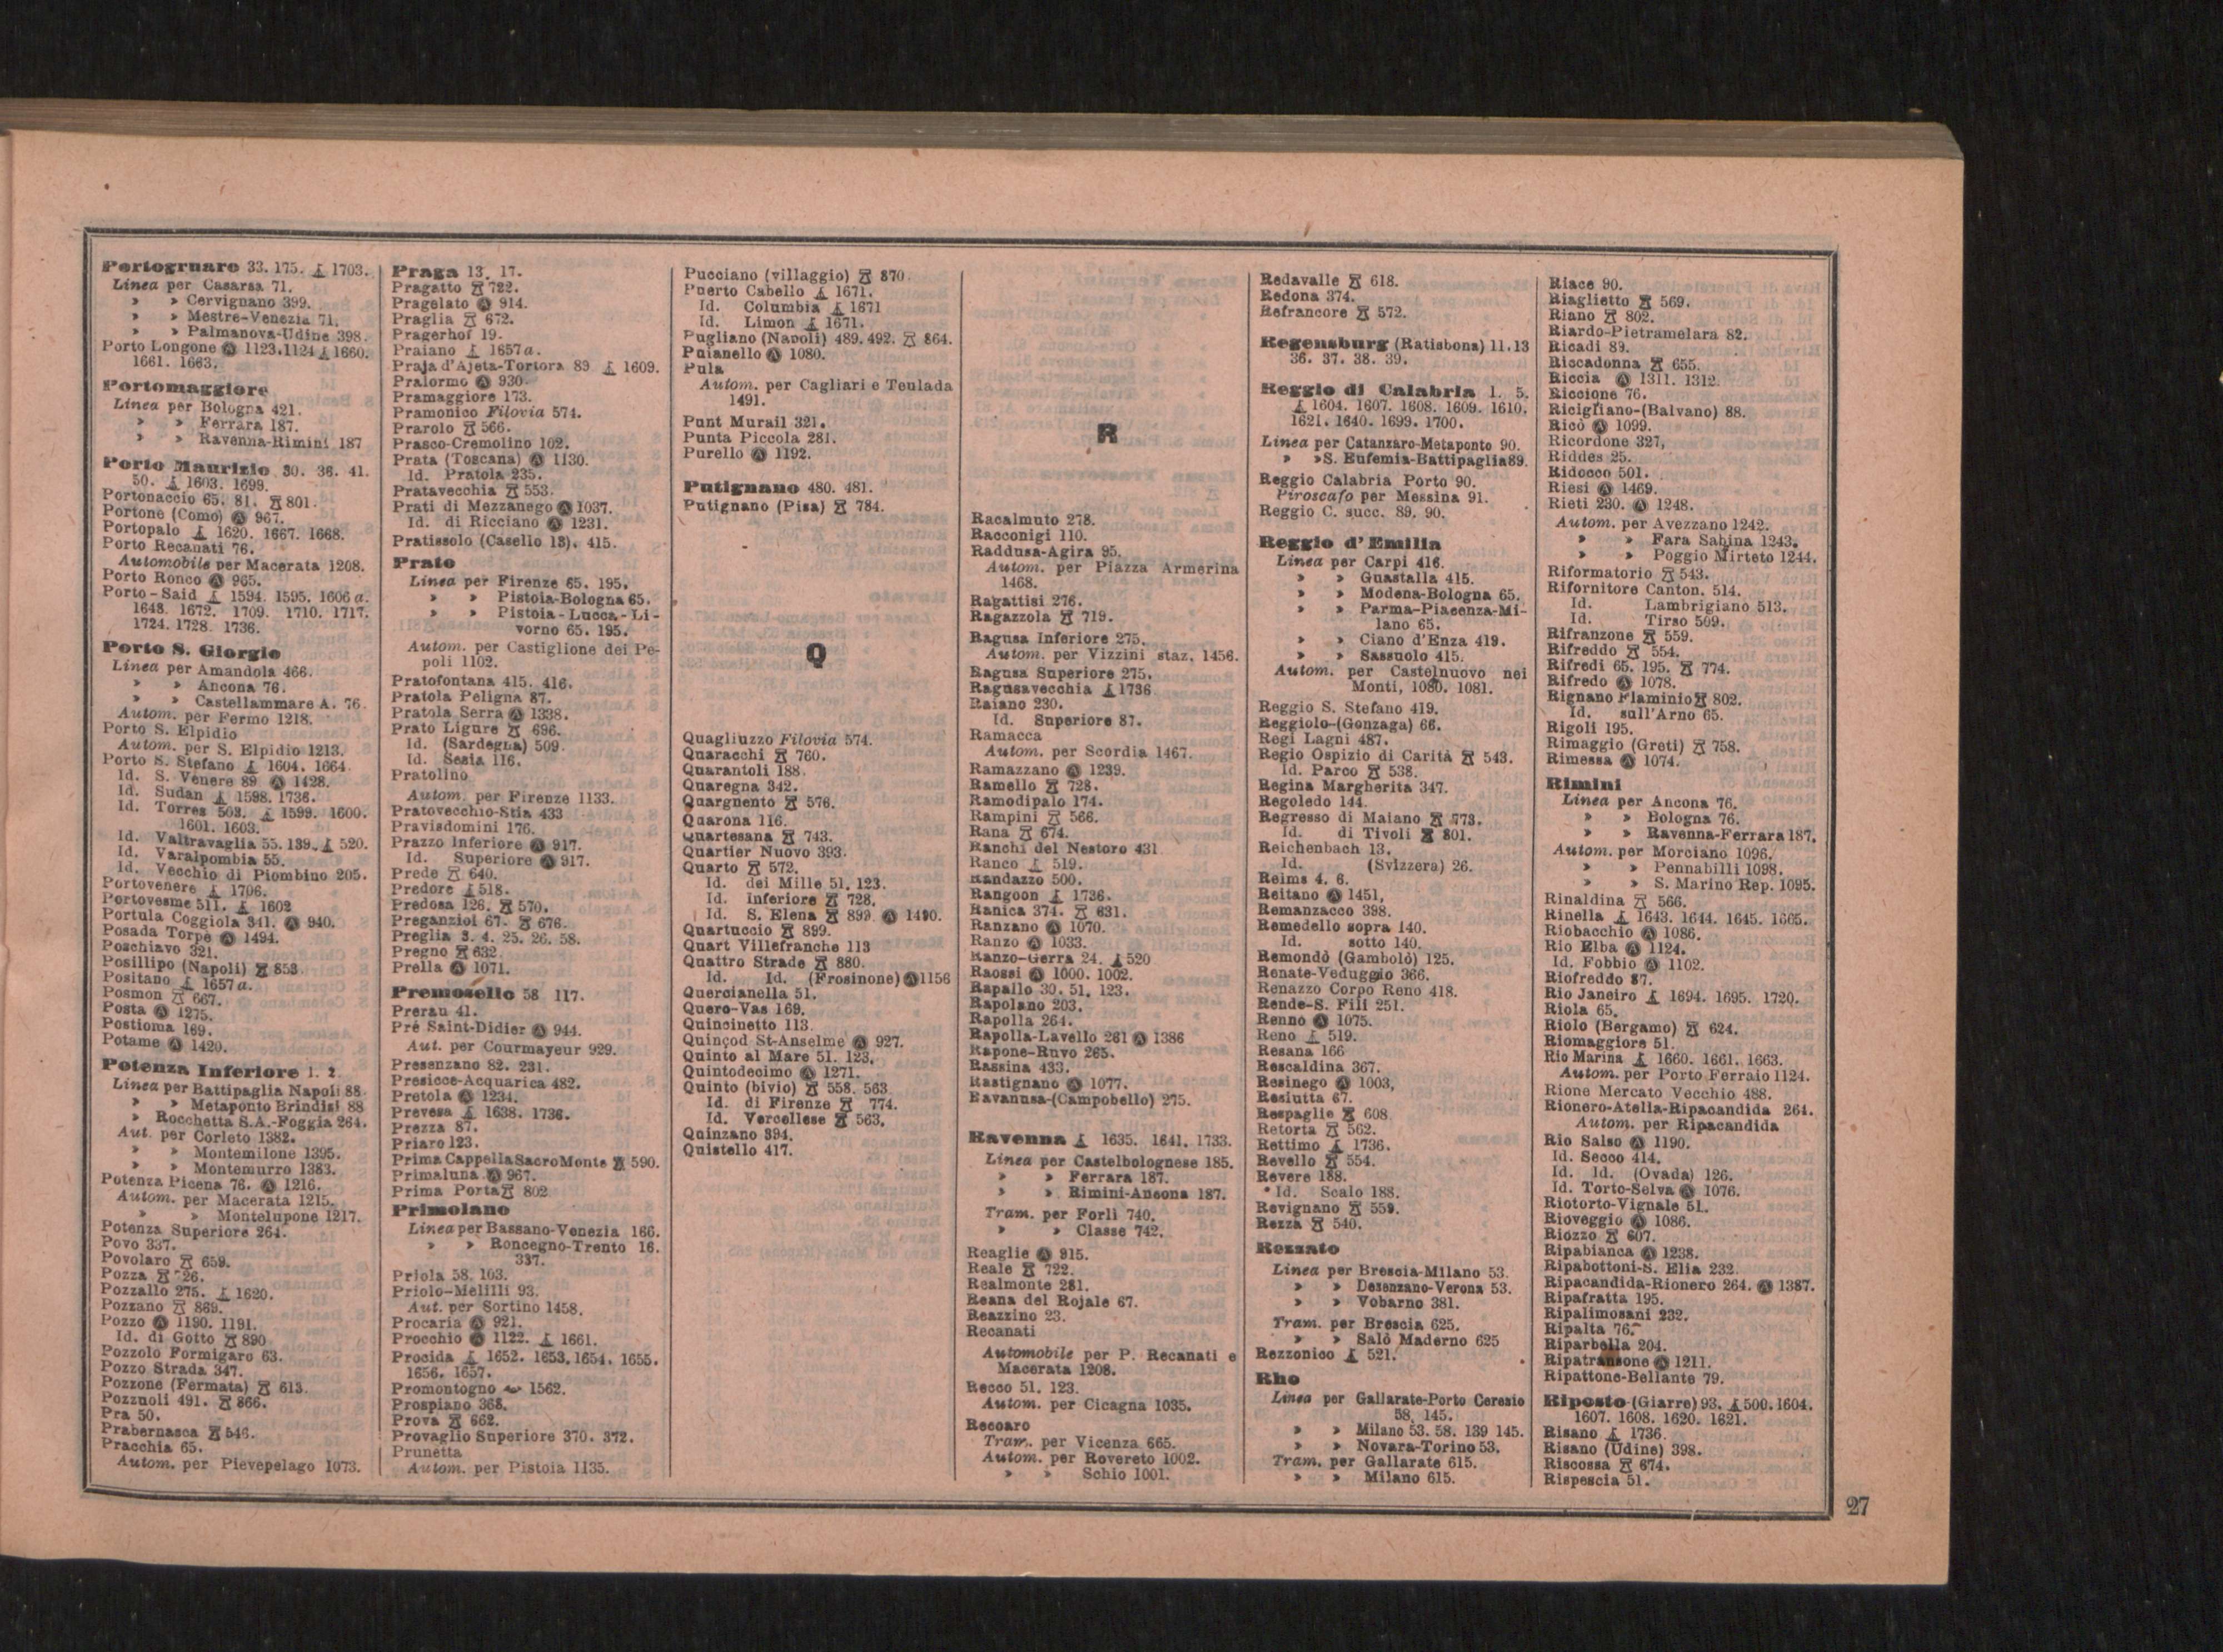 Portogruaro 33. 175. 1703.
Linea per Casarsa 71.
» » Cervignano 399.
» » Mestre-Venezia 71.
» » Palmanova-Udine 398.
Porto Longone Ⓐ 1123.1124 1660.
1661. 1663.
Portomaggiore
Linea per Bologna 421.
» » Ferrara 187.
» » Ravenna-Rimini 187
Porto Maurizio 30. 36. 41.
50. 1603. 1699.
Portonaccio 65. 81. 801.
Portone (Como) Ⓐ 967.
Portopalo 1620. 1667. 1668.
Porto Recanati 76.
Automobile per Macerata 1208.
Porto Ronco Ⓐ 965.
Porto-Said 1594. 1595. 1606 a.
1648. 1672. 1709. 1710. 1717.
1724. 1728. 1736.
Porto S. Giorgio
Linea per Amandola 466.
» » Ancona 76.
» » Castellammare A. 76.
Autom. per Fermo 1218.
Porto S. Elpidio
Autom. per S. Elpidio 1213.
Porto S. Stefano 1604. 1664.
Id. S. Venere 89 Ⓐ 1428.
Id. Sudan 1598. 1736.
Id. Torres 503. 1599. 1600.
1601. 1603.
Id. Valtravaglia 55. 139. 520.
Id. Varalpombia 55.
Id. Vecchio di Piombino 205.
Portovenere 1706.
Portovesme 511. 1602
Portula Coggiola 341. Ⓐ 940.
Posada Torpè Ⓐ 1494.
Poschiavo 321.
Posillipo (Napoli) 853.
Positano 1657 a.
Posmon 667.
Posta Ⓐ 1275.
Postioma 169.
Potame Ⓐ 1420.
Potenza Inferiore 1. 2
Linea per Battipaglia Napoli 88
» » Metaponto Brindisi 88
» Rocchetta S.A.-Foggia 264.
Aut. per Corleto 1382.
» » Montemilone 1395.
» » Montemurro 1383.
Potenza Picena 76. Ⓐ 1216.
Autom. per Macerata 1215.
» » Montelupone 1217.
Potenza Superiore 264.
Povo 337.
Povolaro 659.
Pozza 26.
Pozzallo 275. 1620.
Pozzano 869.
Pozzo Ⓐ 1190. 1191.
Id. di Gotto 890
Pozzolo Formigaro 63.
Pozzo Strada 347.
Pozzone (Fermata) 613.
Pozzuoli 491. 866.
Pra 50.
Prabernasca 546.
Pracchia 65.
Autom. per Pievepelago 1073.
Praga 13. 17.
Pragatto 722.
Pragelato Ⓐ 914.
Praglia 672.
Pragerhof 19.
Praiano 1657 a.
Praja d'Ajeta-Tortora 89 1609.
Pralormo Ⓐ 930.
Pramaggiore 173.
Pramonico Filovia 574.
Prarolo 566.
Prasco-Cremolino 102.
Prata (Toscana) Ⓐ 1130.
Id. Pratola 235.
Pratavecchia 553.
Prati di Mezzanego Ⓐ 1037.
Id. di Ricciano Ⓐ 1231.
Pratissolo (Casello 13). 415.
Prato
Linea per Firenze 65. 195.
» » Pistoia-Bologna 65.
» » Pistoia-Lucca-Li-
vorno 65. 195.
Autom. per Castiglione dei Pe-
poli 1102.
Pratofontana 415. 416.
Pratola Peligna 87.
Pratola Serra Ⓐ 1338.
Prato Ligure 696.
Id. (Sardegna) 509.
Id. Sesia 116.
Pratolino
Autom. per Firenze 1133.
Pratovecchio-Stia 433
Pravisdomini 176.
Prazzo Inferiore Ⓐ 917.
Id. Superiore Ⓐ 917.
Prede 640.
Predore 518.
Predosa 126. 570.
Preganziol 67. 676.
Preglia 3. 4. 25. 26. 58.
Pregno 632
Prella Ⓐ 1071.
Premosello 58 117.
Prerau 41.
Pré Saint-Didier Ⓐ 944.
Aut. per Courmayeur 929.
Presenzano 82. 231.
Presicce-Acquarica 482.
Pretola Ⓐ 1234.
Prevesa 1638. 1736.
Prezza 87.
Priaro 123.
Prima Cappella Sacro Monte 590.
Primaluna Ⓐ 967.
Prima Porta 802
Primolano
Linea per Bassano-Venezia 166.
» » Roncegno-Trento 16.
337.
Priola 58. 103.
Priolo-Melilli 93.
Aut. per Sortino 1458.
Procaria Ⓐ 921.
Procchio Ⓐ 1122. 1661.
Procida 1652. 1653. 1654. 1655.
1656. 1657.
Promontogno 1562.
Prospiano 368.
Prova 662.
Provaglio Superiore 370. 372.
Prunetta
Autom. per Pistoia 1135.
Pucciano (villaggio) 870.
Puerto Cabello 1671.
Id. Columbia 1671
Id. Limon 1671.
Pugliano (Napoli) 489. 492. 864.
Puianello Ⓐ 1080.
Pula
Autom. per Cagliari e Teulada
1491.
Punt Murail 321.
Punta Piccola 281.
Purello Ⓐ 1192.
Putignano 480. 481.
Putignano (Pisa) 784.
Q
Quagliuzzo Filovia 574.
Quaracchi 760.
Quarantoli 188.
Quaregna 342.
Quargnento 576.
Quarona 116.
Quartesana 743.
Quartier Nuovo 393.
Quarto 572.
Id. dei Mille 51. 123.
Id. Inferiore 728.
Id. S. Elena 899. Ⓐ 1490.
Quartuccio 899.
Quart Villefranche 113
Quattro Strade 880.
Id. Id. (Frosinone) Ⓐ 1156
Quercianella 51.
Quero-Vas 169.
Quincinetto 113.
Quinçod St-Anselme Ⓐ 927.
Quinto al Mare 51. 123.
Quintodecimo Ⓐ 1271.
Quinto (bivio) 558. 563.
Id. di Firenze 774.
Id. Vercellese 563.
Quinzano 394.
Quistello 417.
R
Racalmuto 278.
Racconigi 110.
Raddusa-Agira 95.
Autom. per Piazza Armerina
1468.
Ragattisi 276.
Ragazzola 719.
Ragusa Inferiore 275.
Autom. per Vizzini staz. 1456.
Ragusa Superiore 275.
Ragusavecchia 1736
Raiano 230.
Id. Superiore 87.
Ramacca
Autom. per Scordia 1467.
Ramazzano Ⓐ 1239.
Ramello 728.
Ramodipalo 174.
Rampini 566.
Rana 674.
Ranchi del Nestoro 431
Ranco 519.
Randazzo 500.
Rangoon 1736.
Ranica 374. 631.
Ranzano Ⓐ 1070.
Ranzo Ⓐ 1033.
Ranzo-Gerra 24. 520
Raossi Ⓐ 1000. 1002.
Rapallo 30. 51. 123.
Rapolano 203.
Rapolla 264.
Rapolla-Lavello 261 Ⓐ 1386
Rapone-Ruvo 265.
Rassina 433.
Rastignano Ⓐ 1077.
Ravanusa-(Campobello) 275.
Ravenna 1635. 1641. 1733.
Linea per Castelbolognese 185.
» » Ferrara 187.
» » Rimini-Ancona 187.
Tram. per Forlì 740.
» » Classe 742.
Reaglie Ⓐ 915.
Reale 722.
Realmonte 281.
Reana del Rojale 67.
Reazzino 23.
Recanati
Automobile per P. Recanati e
Macerata 1208.
Recco 51. 123.
Autom. per Cicagna 1035.
Recoaro
Tram. per Vicenza 665.
Autom. per Rovereto 1002.
» » Schio 1001.
Redavalle 618.
Redona 374.
Refrancore 572.
Regensburg (Ratisbona) 11.13
36. 37. 38. 39.
Reggio di Calabria 1. 5.
1604. 1607. 1608. 1609. 1610.
1621. 1640. 1699. 1700.
Linea per Catanzaro-Metaponto 90.
» » S. Eufemia-Battipaglia 89.
Reggio Calabria Porto 90.
Piroscafo per Messina 91.
Reggio C. succ. 89. 90.
Reggio d'Emilia
Linea per Carpi 416.
» » Guastalla 415.
» » Modena-Bologna 65.
» » Parma-Piacenza-Mi-
lano 65.
» » Ciano d'Enza 419.
» » Sassuolo 415.
Autom. per Castelnuovo nei
Monti, 1080. 1081.
Reggio S. Stefano 419.
Reggiolo-(Gonzaga) 66.
Regi Lagni 487.
Regio Ospizio di Carità 543.
Id. Parco 538.
Regina Margherita 347.
Regoledo 144.
Regresso di Maiano 773.
Id. di Tivoli 801.
Reichenbach 13.
Id. (Svizzera) 26.
Reims 4. 6.
Reitano Ⓐ 1451.
Remanzacco 398.
Remedello sopra 140.
Id. sotto 140.
Remondò (Gambolò) 125.
Renate-Veduggio 366.
Renazzo Corpo Reno 418.
Rende-S. Fili 251.
Renno Ⓐ 1075.
Reno 519.
Resana 166
Rescaldina 367.
Resinego Ⓐ 1003,
Resiutta 67.
Respaglie 608
Retorta 562.
Rettimo 1736.
Revello 554.
Revere 188.
Id. Scalo 188.
Revignano 559.
Rezza 540.
Rezzato
Linea per Brescia-Milano 53.
» » Desenzano-Verona 53.
» » Vobarno 381.
Tram. per Brescia 625.
» » Salò Maderno 625
Rezzonico 521.
Rho
Linea per Gallarate-Porto Ceresio
58, 145.
» » Milano 53. 58. 139 145.
» » Novara-Torino 53.
Tram. per Gallarate 615.
» » Milano 615.
Riace 90.
Riaglietto 569.
Riano 802.
Riardo-Pietramelara 82.
Ricadi 89.
Riccadonna 655.
Riccia Ⓐ 1311. 1312.
Riccione 76.
Ricigliano-(Balvano) 88.
Ricò Ⓐ 1099.
Ricordone 327,
Riddes 25.
Ridocco 501.
Riesi Ⓐ 1469.
Rieti 230. Ⓐ 1248.
Autom. per Avezzano 1242.
» » Fara Sabina 1243.
» » Poggio Mirteto 1244.
Riformatorio 543.
Rifornitore Canton. 514.
Id. Lambrigiano 513.
Id. Tirso 509.
Rifranzone 559.
Rifreddo 554.
Rifredi 65. 195. 774.
Rifredo Ⓐ 1078.
Rignano Flaminio 802.
Id. sull'Arno 65.
Rigoli 195.
Rimaggio (Greti) 758.
Rimessa Ⓐ 1074.
Rimini
Linea per Ancona 76.
» » Bologna 76.
» » Ravenna-Ferrara 187.
Autom. per Morciano 1096.
» » Pennabilli 1098.
» » S. Marino Rep. 1095.
Rinaldina 566.
Rinella 1643. 1644. 1645. 1665.
Riobacchio Ⓐ 1086.
Rio Elba Ⓐ 1124.
Id. Fobbio Ⓐ 1102.
Riofreddo 87.
Rio Janeiro 1694. 1695. 1720.
Riola 65.
Riolo (Bergamo) 624.
Riomaggiore 51.
Rio Marina 1660. 1661. 1663.
Autom. per Porto Ferraio 1124.
Rione Mercato Vecchio 488.
Rionero-Atella-Ripacandida 264.
Autom. per Ripacandida
Rio Salso Ⓐ 1190.
Id. Secco 414.
Id. Id. (Ovada) 126.
Id. Torto-Selva Ⓐ 1076.
Riotorto-Vignale 51.
Rioveggio Ⓐ 1086.
Riozzo 607.
Ripabianca Ⓐ 1238.
Ripabottoni-S. Elia 232.
Ripacandida-Rionero 264. Ⓐ 1387.
Ripafratta 195.
Ripalimosani 232.
Ripalta 76.
Riparbella 204.
Ripatransone Ⓐ 1211.
Ripattone-Bellante 79.
Riposto (Giarre) 93. 500. 1604.
1607. 1608. 1620. 1621.
Risano 1736.
Risano (Udine) 398.
Riscossa 674.
Rispescia 51.
27